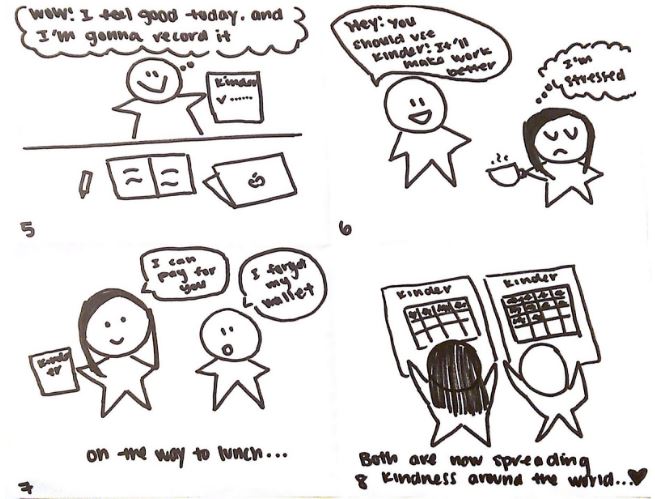 wow! I feel good today. and
I'm gonna record it
Kinder
5
Hey! You
should use
kinder! It'll
make work
better
I'm
stressed
6
I can
pay for
you
I forgot
my
wallet
Kinde
er
on the way to lunch...
7
Kinder
Kinder
Both are now spreading
kindness around the world...
8